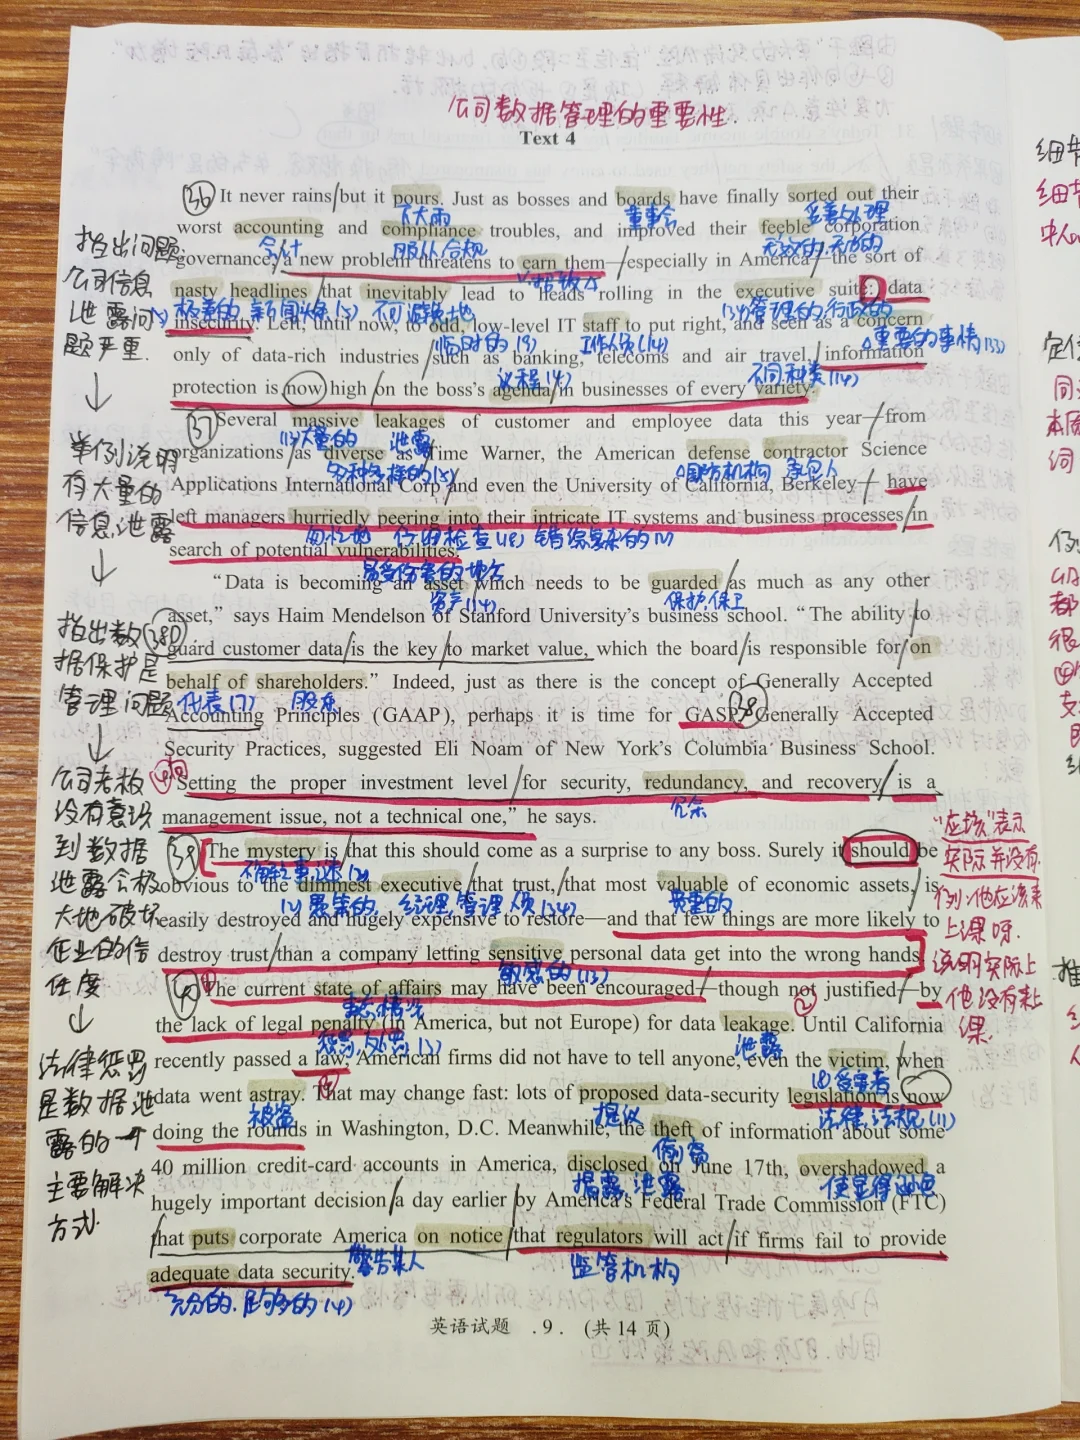 公司数据管理的重要性
Text 4
36 It never rains/but it pours. Just as bosses and boards have finally sorted out their
下大雨 董事会
worst accounting and compliance troubles, and improved their feeble corporation
会计 服从合规 无效的,无力的
governance, a new problem threatens to earn them—/especially in America/—the sort of
nasty headlines /that inevitably lead to heads rolling in the executive suite: data
极差的 新闻头条(5) 不可避免地 (34)管理的,行政的
insecurity. Left, until now, to odd, low-level IT staff to put right, and seen as a concern
临时的(9) 工作人员(14) 重要的事情(33)
only of data-rich industries /such as banking, telecoms and air travel, /information
议程(4) 不同种类(14)
protection is now high /on the boss's agenda/in businesses of every variety.
37 Several massive leakages of customer and employee data this year—/from
(13)大量的 泄露
organizations /as diverse as Time Warner, the American defense contractor Science
多种多样的(5) 国防机构 承包人
Applications International Corp/and even the University of California, Berkeley—/have
left managers hurriedly peering into their intricate IT systems and business processes/in
匆忙地 仔细检查(12) 错综复杂的(1)
search of potential vulnerabilities.
易受伤害的地方
"Data is becoming an asset which needs to be guarded /as much as any other
资产(14) 保护,保卫
asset," says Haim Mendelson of Stanford University's business school. "The ability/to
guard customer data/is the key/to market value, which the board/is responsible for/on
behalf of shareholders." Indeed, just as there is the concept of Generally Accepted
代表(7) 股东 38
Accounting Principles (GAAP), perhaps it is time for GASP, Generally Accepted
Security Practices, suggested Eli Noam of New York's Columbia Business School.
"Setting the proper investment level /for security, redundancy, and recovery/ is a
冗余
management issue, not a technical one," he says.
39 The mystery is/that this should come as a surprise to any boss. Surely it should be
obvious to the dimmest executive/that trust,/that most valuable of economic assets,/ is
(1)愚笨的, 经理,管理人员(34) 贵重的
easily destroyed and hugely expensive to restore—and that few things are more likely to
destroy trust/than a company letting sensitive personal data get into the wrong hands.
敏感的(13)
40 The current state of affairs may have been encouraged—/though not justified—/by
事态情况
the lack of legal penalty (in America, but not Europe) for data leakage. Until California
惩罚,处罚(3) 泄露
recently passed a law, American firms did not have to tell anyone, even the victim, /when
(8)受害者
data went astray. That may change fast: lots of proposed data-security legislation is now
被盗 提议 法律,法规(11)
doing the rounds in Washington, D.C. Meanwhile, the theft of information about some
偷窃
40 million credit-card accounts in America, disclosed on June 17th, overshadowed a
揭露,泄露
hugely important decision/a day earlier/by America's Federal Trade Commission (FTC)
/that puts corporate America on notice/that regulators will act/if firms fail to provide
警告某人 监管机构
adequate data security.
充分的,足够的(4)
英语试题 . 9 . (共 14 页)
指出问题:
公司信息
泄露问
题严重.
↓
举例说明
有大量的
信息泄露
↓
指出数
据保护是
管理问题
↓
公司老板
没有意识
到数据
泄露会极
大地破坏
企业的信
任度
↓
法律惩罚
是数据泄
露的一个
主要解决
方式.
"应该"表示
实际并没有.
例:他应该来
上课呀.
说明实际上
他没有来上
课.